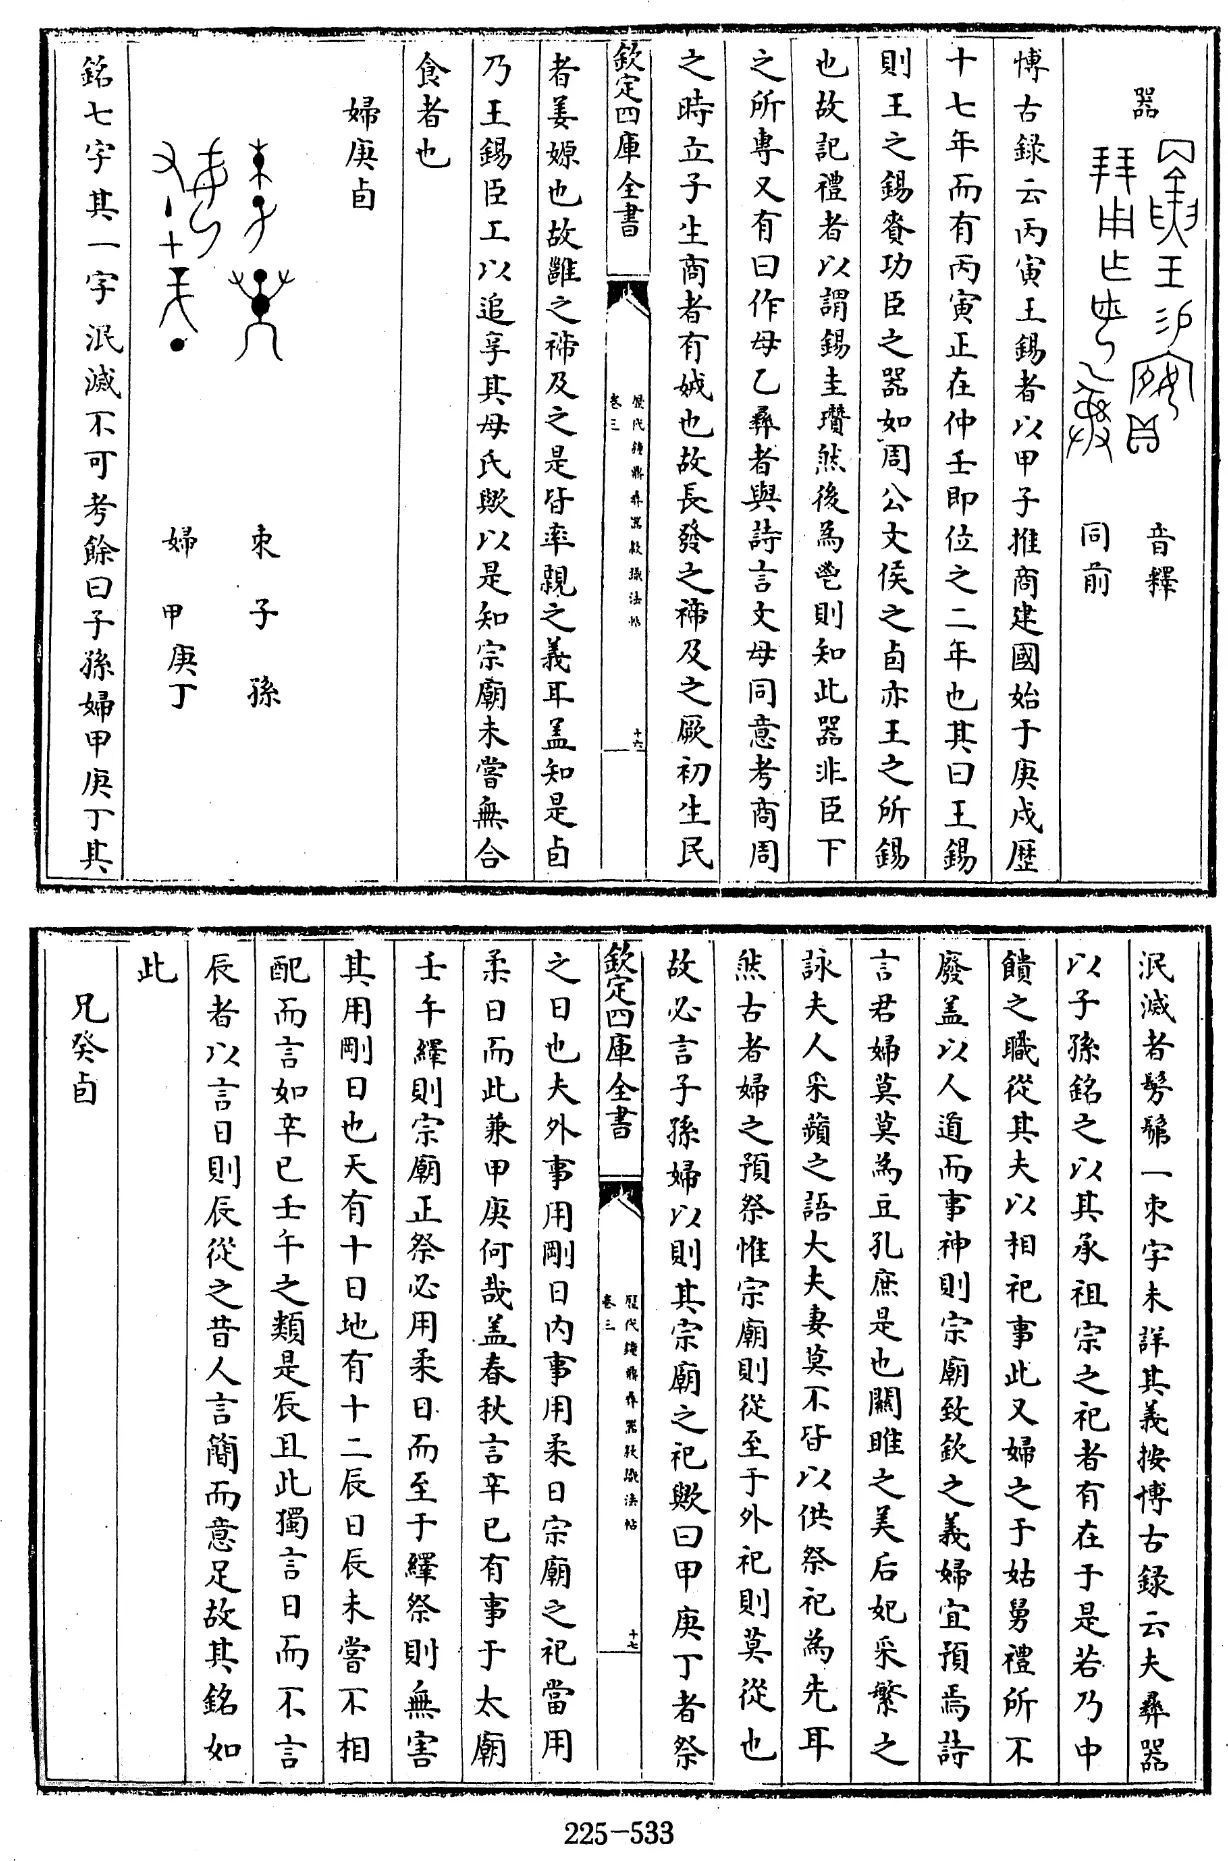 器
音釋
同前
博古録云丙寅王錫者以甲子推商建國始于庚戌歴
十七年而有丙寅正在仲壬即位之二年也其曰王錫
則王之錫賚功臣之器如周公文侯之卣亦王之所錫
也故記禮者以謂錫圭瓚然後為鬯則知此器非臣下
之所專又有曰作母乙彝者與詩言文母同意考商周
之時立子生商者有娀也故長發之禘及之厥初生民
欽定四庫全書
歷代鐘鼎彝器款識法帖
卷三
十六
者姜嫄也故雝之禘及之是皆率親之義耳盖知是卣
乃王錫臣工以追享其母氏歟以是知宗廟未嘗無合
食者也
婦庚卣
朿子孫
婦甲庚丁
銘七字其一字泯滅不可考餘曰子孫婦甲庚丁其
泯滅者髣髴一朿字未詳其義按博古録云夫彝器
以子孫銘之以其承祖宗之祀者有在于是若乃中
饋之職從其夫以相祀事此又婦之于姑舅禮所不
廢盖以人道而事神則宗廟致欽之義婦宜預焉詩
言君婦莫莫為豆孔庶是也關雎之美后妃采蘩之
詠夫人采蘋之語大夫妻莫不皆以供祭祀為先耳
然古者婦之預祭惟宗廟則從至于外祀則莫從也
故必言子孫婦以則其宗廟之祀歟曰甲庚丁者祭
欽定四庫全書
歷代鐘鼎彝器款識法帖
卷三
十七
之日也夫外事用剛日内事用柔日宗廟之祀當用
柔日而此兼甲庚何哉盖春秋言辛已有事于太廟
壬午繹則宗廟正祭必用柔日而至于繹祭則無害
其用剛日也天有十日地有十二辰日辰未嘗不相
配而言如辛已壬午之類是辰且此獨言日而不言
辰者以言日則辰從之昔人言簡而意足故其銘如
此
兄癸卣
225-533